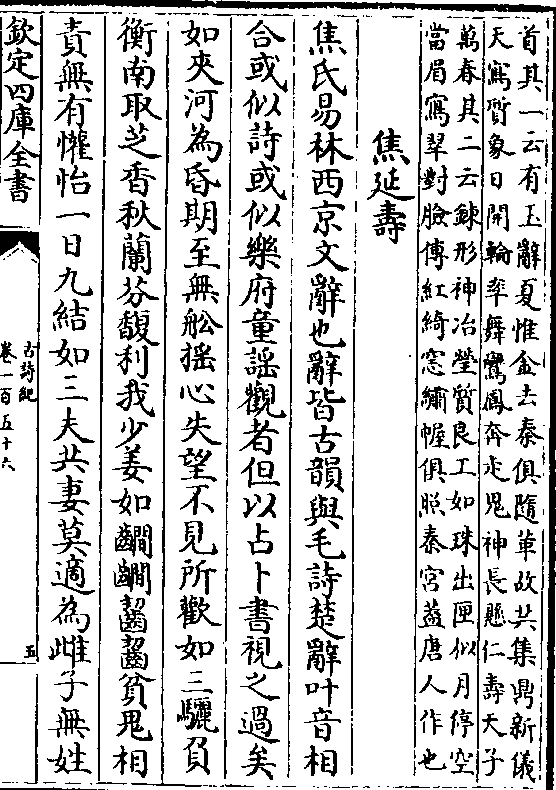 首其一云有玉辭夏惟金去秦俱隨革故共集鼎新儀
天寫質象日開輪率舞鸞鳳奔走鬼神長懸仁壽天子
萬春其二云鍊形神冶瑩質良工如珠出匣似月停空
當眉寫翠對臉傳紅綺窓繡幄俱照秦宮葢唐人作也
焦延壽
焦氏易林西京文辭也辭皆古韻與毛詩楚辭叶音相
合或似詩或似樂府童謡觀者但以占卜書視之過矣
如夾河為昏期至無船揺心失望不見所歡如三驪負
衡南取芝香秋蘭芬馥利我少姜如齵齵齧齧貧鬼相
責無有懽怡一日九結如三夫共妻莫適為雌子無姓
欽定四庫全書
古詩紀
卷一百五十六
五